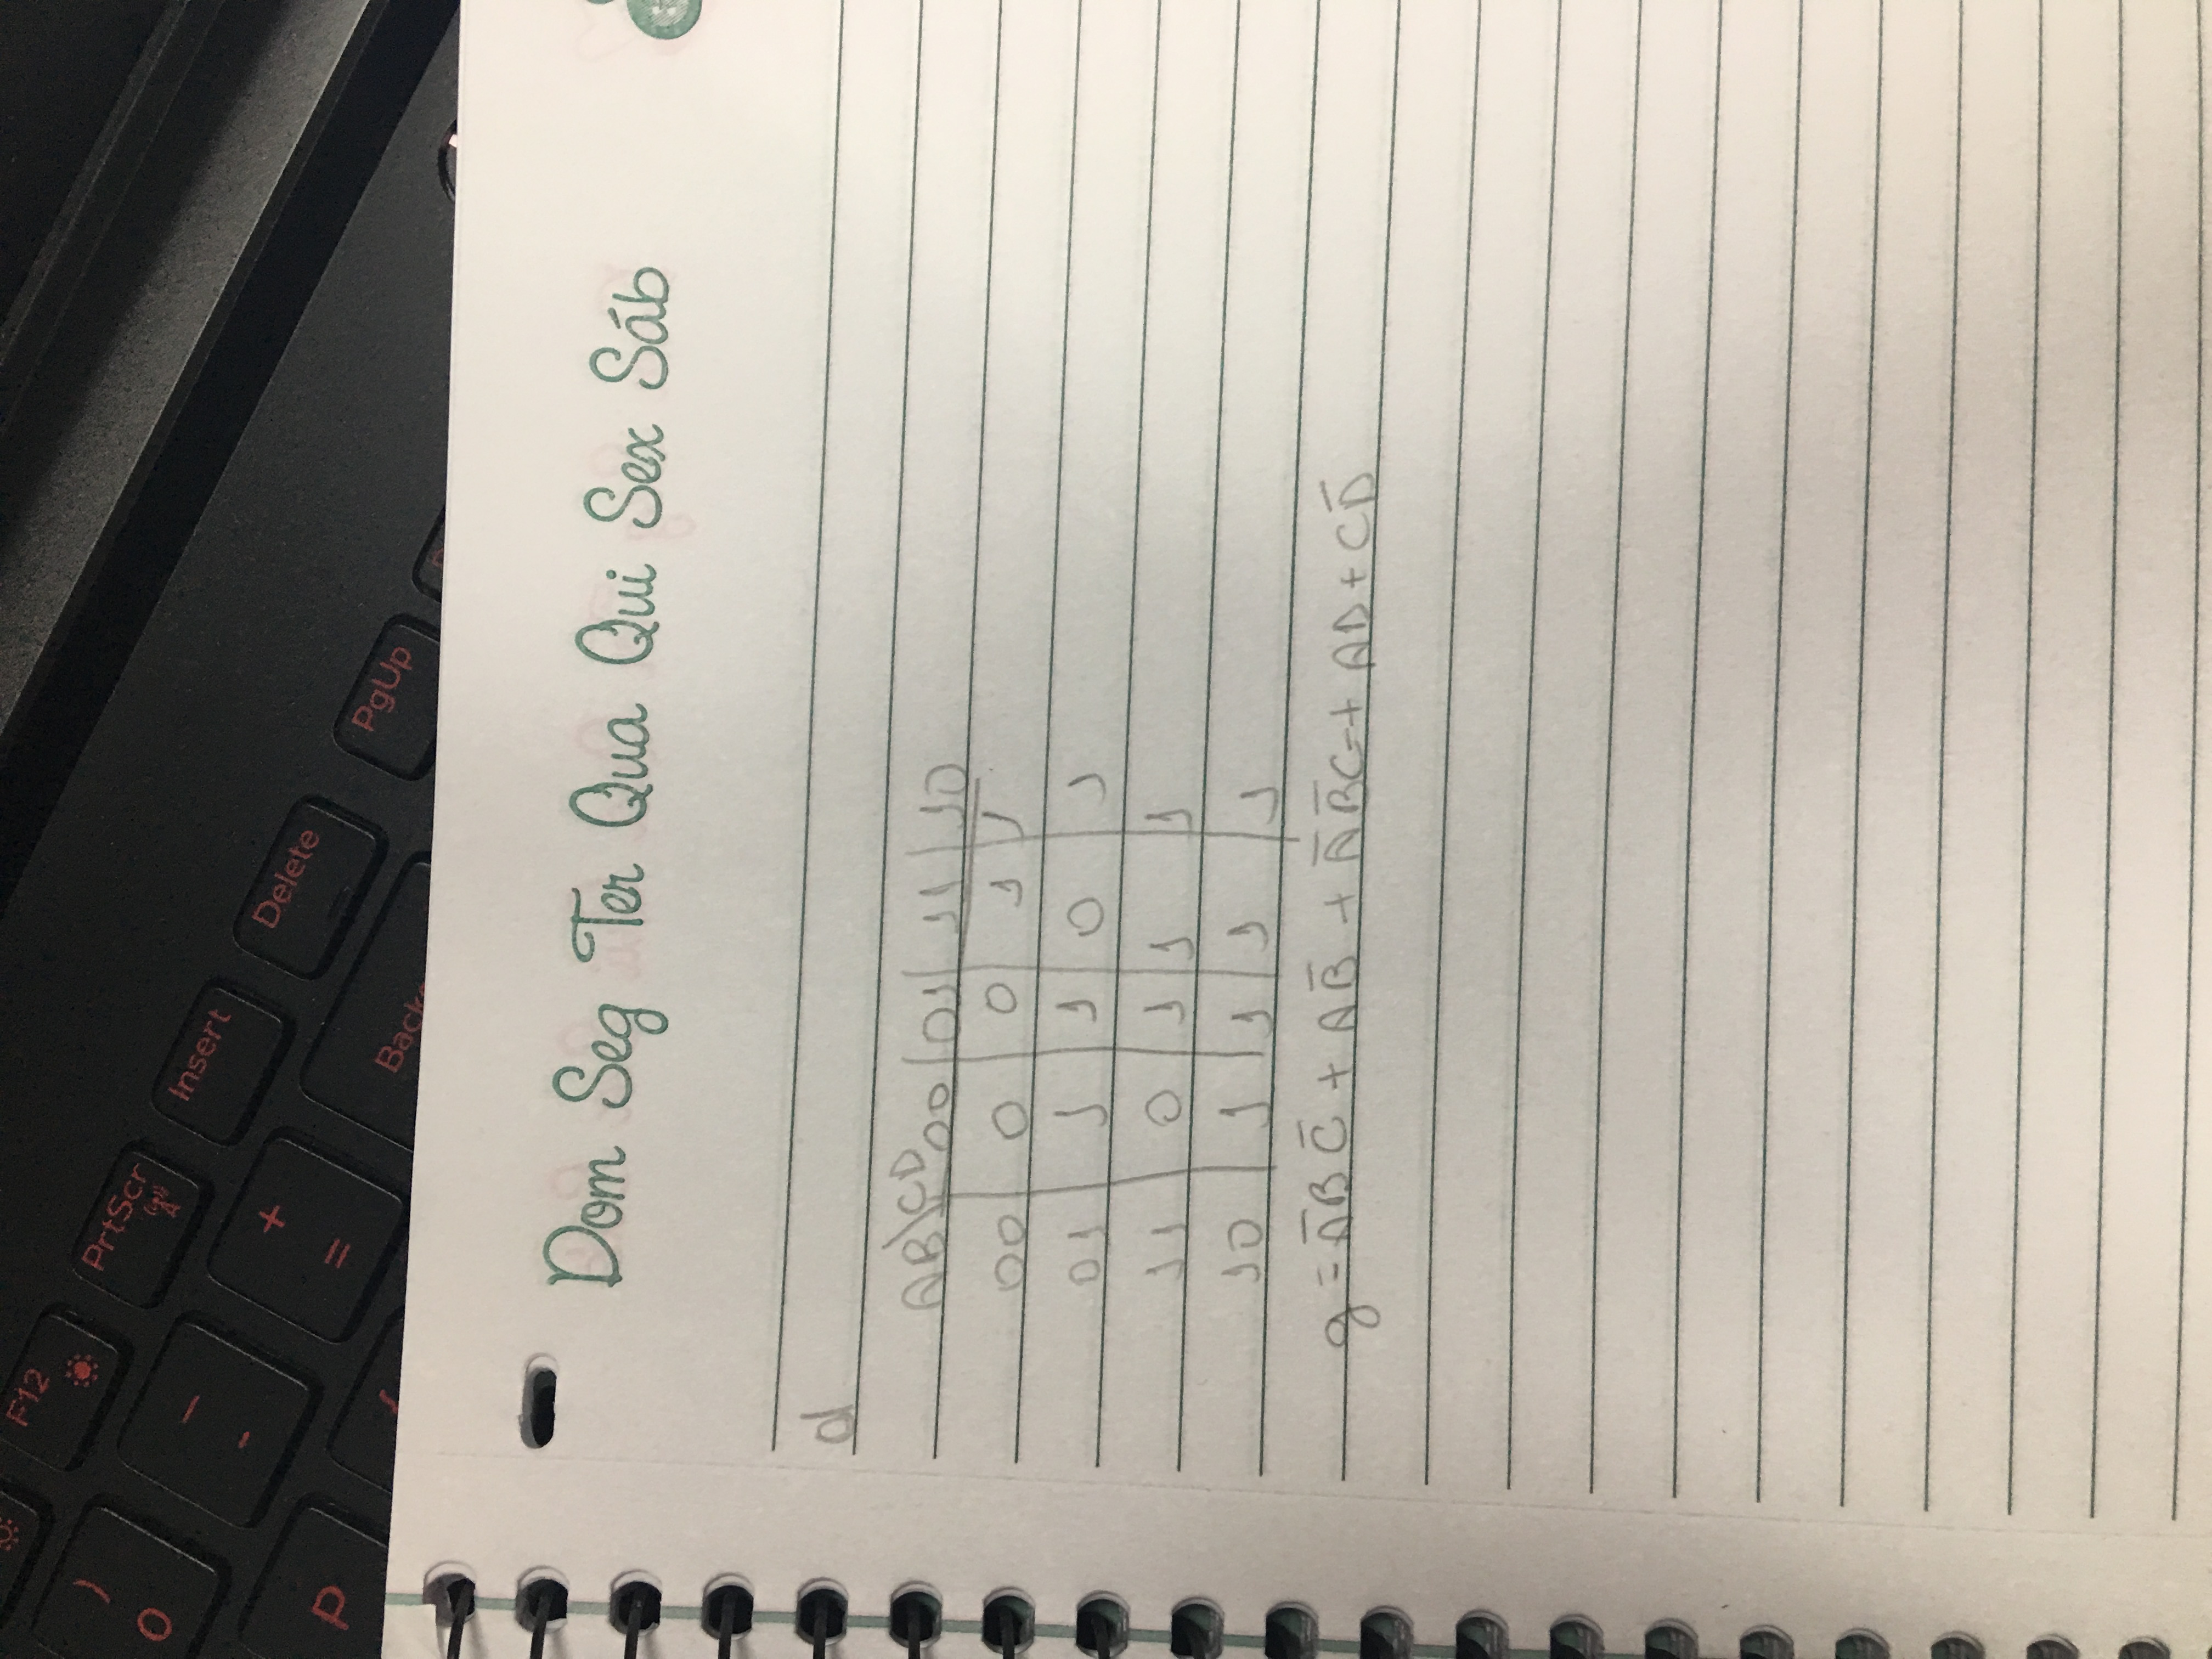 F12
)
0
PrtScr
Insert
Delete
PgUp
-
+
=
P
Back
Dom Seg Ter Qua Qui Sex Sáb
d
AB\CD 00 01 11 10
00 0 0 1 1
01 1 1 0 1
11 0 1 1 1
10 1 1 1 1
g = A̅BC̅ + AB̅ + A̅B̅C + AD + CD̅